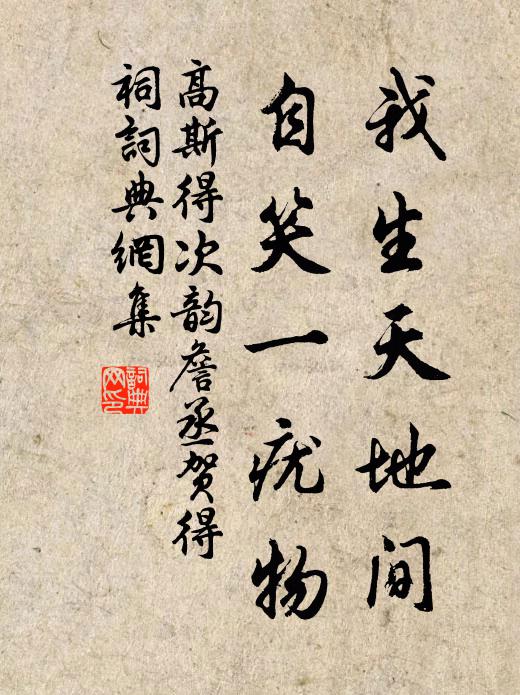 我生天地间
自笑一疣物
高斯得次韵詹丞贺得
祠詞典網集
詞典网印